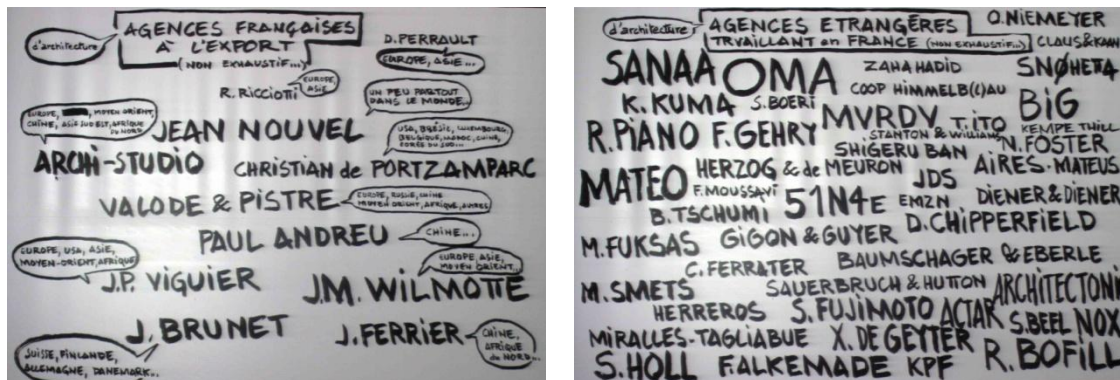 d'architecture
AGENCES FRANÇAISES
À L'EXPORT
(NON EXHAUSTIF...)
D. PERRAULT
EUROPE, ASIE...
R. RICCIOTTI
EUROPE
ASIE
UN PEU PARTOUT
DANS LE MONDE...
EUROPE, MOYEN ORIENT,
CHINE, ASIE SUD EST, AFRIQUE
DU NORD
JEAN NOUVEL
USA, BRÉSIL, LUXEMBOURG,
BELGIQUE, MAROC, CHINE,
CORÉE DU SUD...
ARCHI-STUDIO
CHRISTIAN de PORTZAMPARC
VALODE & PISTRE
EUROPE, RUSSIE, CHINE
MOYEN ORIENT, AFRIQUE, AUTRES
PAUL ANDREU
CHINE...
EUROPE, USA, ASIE,
MOYEN-ORIENT, AFRIQUE
EUROPE, ASIE,
MOYEN ORIENT...
J.P. VIGUIER
J.M. WILMOTTE
J. BRUNET
J. FERRIER
CHINE,
AFRIQUE
du NORD...
SUISSE, FINLANDE,
ALLEMAGNE, DANEMARK...
d'architecture
AGENCES ETRANGÈRES
TRVAILLANT en FRANCE (NON EXHAUSTIF...)
O. NIEMEYER
CLAUS&KAAN
SANAA OMA ZAHA HADID SNØHETTA
COOP HIMMELB(L)AU
K. KUMA S. BOERI MVRDV T. ITO BIG
STANTON & WILLIAMS KEMPE THILL
R. PIANO F. GEHRY SHIGERU BAN N. FOSTER
MATEO HERZOG & de MEURON JDS AIRES-MATEUS
F. MOUSSAVI 51N4E EMZN DIENER & DIENER
B. TSCHUMI D. CHIPPERFIELD
M. FUKSAS GIGON & GUYER
C. FERRATER BAUMSCHAGER & EBERLE
M. SMETS SAUERBRUCH & HUTTON ARCHITECTONI
HERREROS S. FUJIMOTO ACTAR S. BEEL NOX
MIRALLES-TAGLIABUE X. DE GEYTER
S. HOLL FALKEMADE KPF R. BOFILL